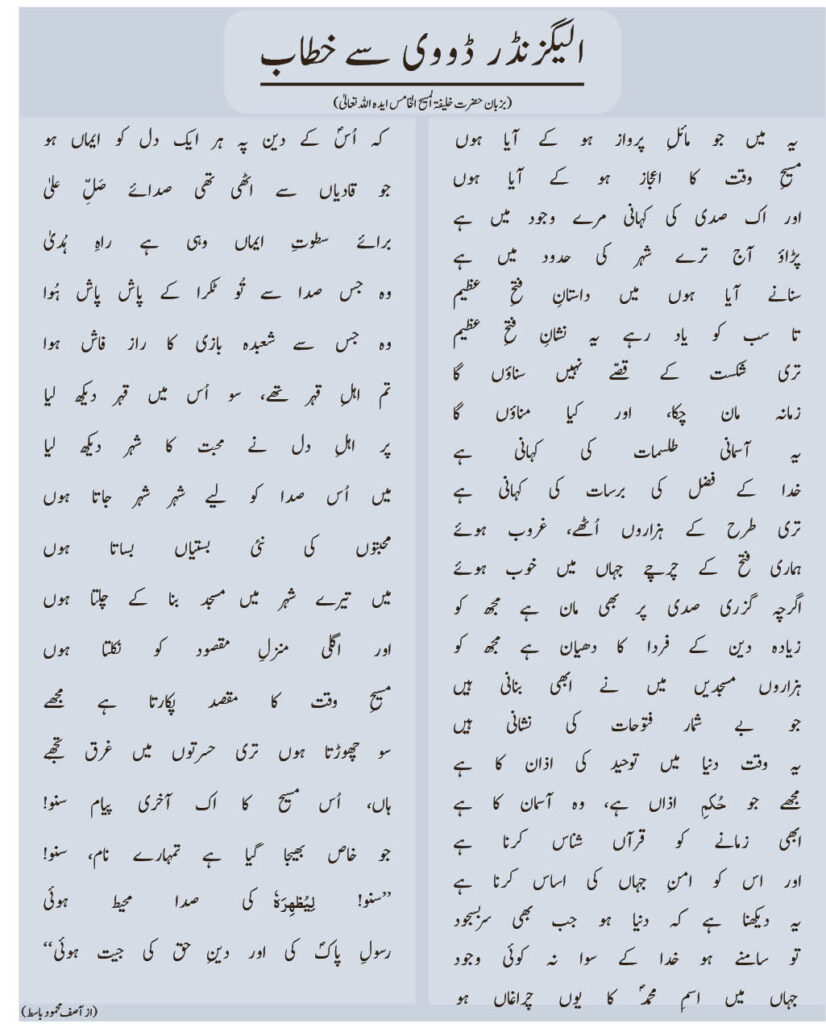 الیگزنڈر ڈووی سے خطاب
(بزبان حضرت خلیفۃ المسیح الخامس ایدہ اللہ تعالیٰ)
یہ میں جو مائلِ پرواز ہو کے آیا ہوں
مسیحِ وقت کا اعجاز ہو کے آیا ہوں
اور اک صدی کی کہانی مرے وجود میں ہے
پڑاؤ آج ترے شہر کی حدود میں ہے
سنانے آیا ہوں میں داستانِ فتحِ عظیم
تا سب کو یاد رہے یہ نشانِ فتحِ عظیم
تری شکست کے قصّے نہیں سناؤں گا
زمانہ مان چکا، اور کیا مناؤں گا
یہ آسمانی طلسمات کی کہانی ہے
خدا کے فضل کی برسات کی کہانی ہے
تری طرح کے ہزاروں اُٹھے، غروب ہوئے
ہماری فتح کے چرچے جہاں میں خوب ہوئے
اگرچہ گزری صدی پر بھی مان ہے مجھ کو
زیادہ دین کے فردا کا دھیان ہے مجھ کو
ہزاروں مسجدیں میں نے ابھی بنانی ہیں
جو بے شمار فتوحات کی نشانی ہیں
یہ وقت دنیا میں توحید کی اذان کا ہے
مجھے جو حُکمِ اذاں ہے، وہ آسمان کا ہے
ابھی زمانے کو قرآں شناس کرنا ہے
اور اس کو امنِ جہاں کی اساس کرنا ہے
یہ دیکھنا ہے کہ دنیا ہو جب بھی سربسجود
تو سامنے ہو خدا کے سوا نہ کوئی وجود
جہاں میں اسمِ محمدؐ کا یوں چراغاں ہو
کہ اُسؐ کے دین پہ ہر ایک دل کو ایماں ہو
جو قادیاں سے اٹھی تھی صدائے صَلِّ علیٰ
برائے سطوتِ ایماں وہی ہے راہِ ہُدیٰ
وہ جس صدا سے تُو ٹکرا کے پاش پاش ہُوا
وہ جس سے شعبدہ بازی کا راز فاش ہوا
تم اہلِ قہر تھے، سو اُس میں قہر دیکھ لیا
پر اہلِ دل نے محبت کا شہر دیکھ لیا
میں اُس صدا کو لیے شہر شہر جاتا ہوں
محبتوں کی نئی بستیاں بساتا ہوں
میں تیرے شہر میں مسجد بنا کے چلتا ہوں
اور اگلی منزلِ مقصود کو نکلتا ہوں
مسیحِ وقت کا مقصد پکارتا ہے مجھے
سو چھوڑتا ہوں تری حسرتوں میں غرق تجھے
ہاں، اُس مسیح کا اک آخری پیام سنو!
جو خاص بھیجا گیا ہے تمہارے نام، سنو!
”سنو! لِیُظْهِرَهٗ کی صدا محیط ہوئی
رسولِ پاکؐ کی اور دینِ حق کی جیت ہوئی“
(از آصف محمود باسط)